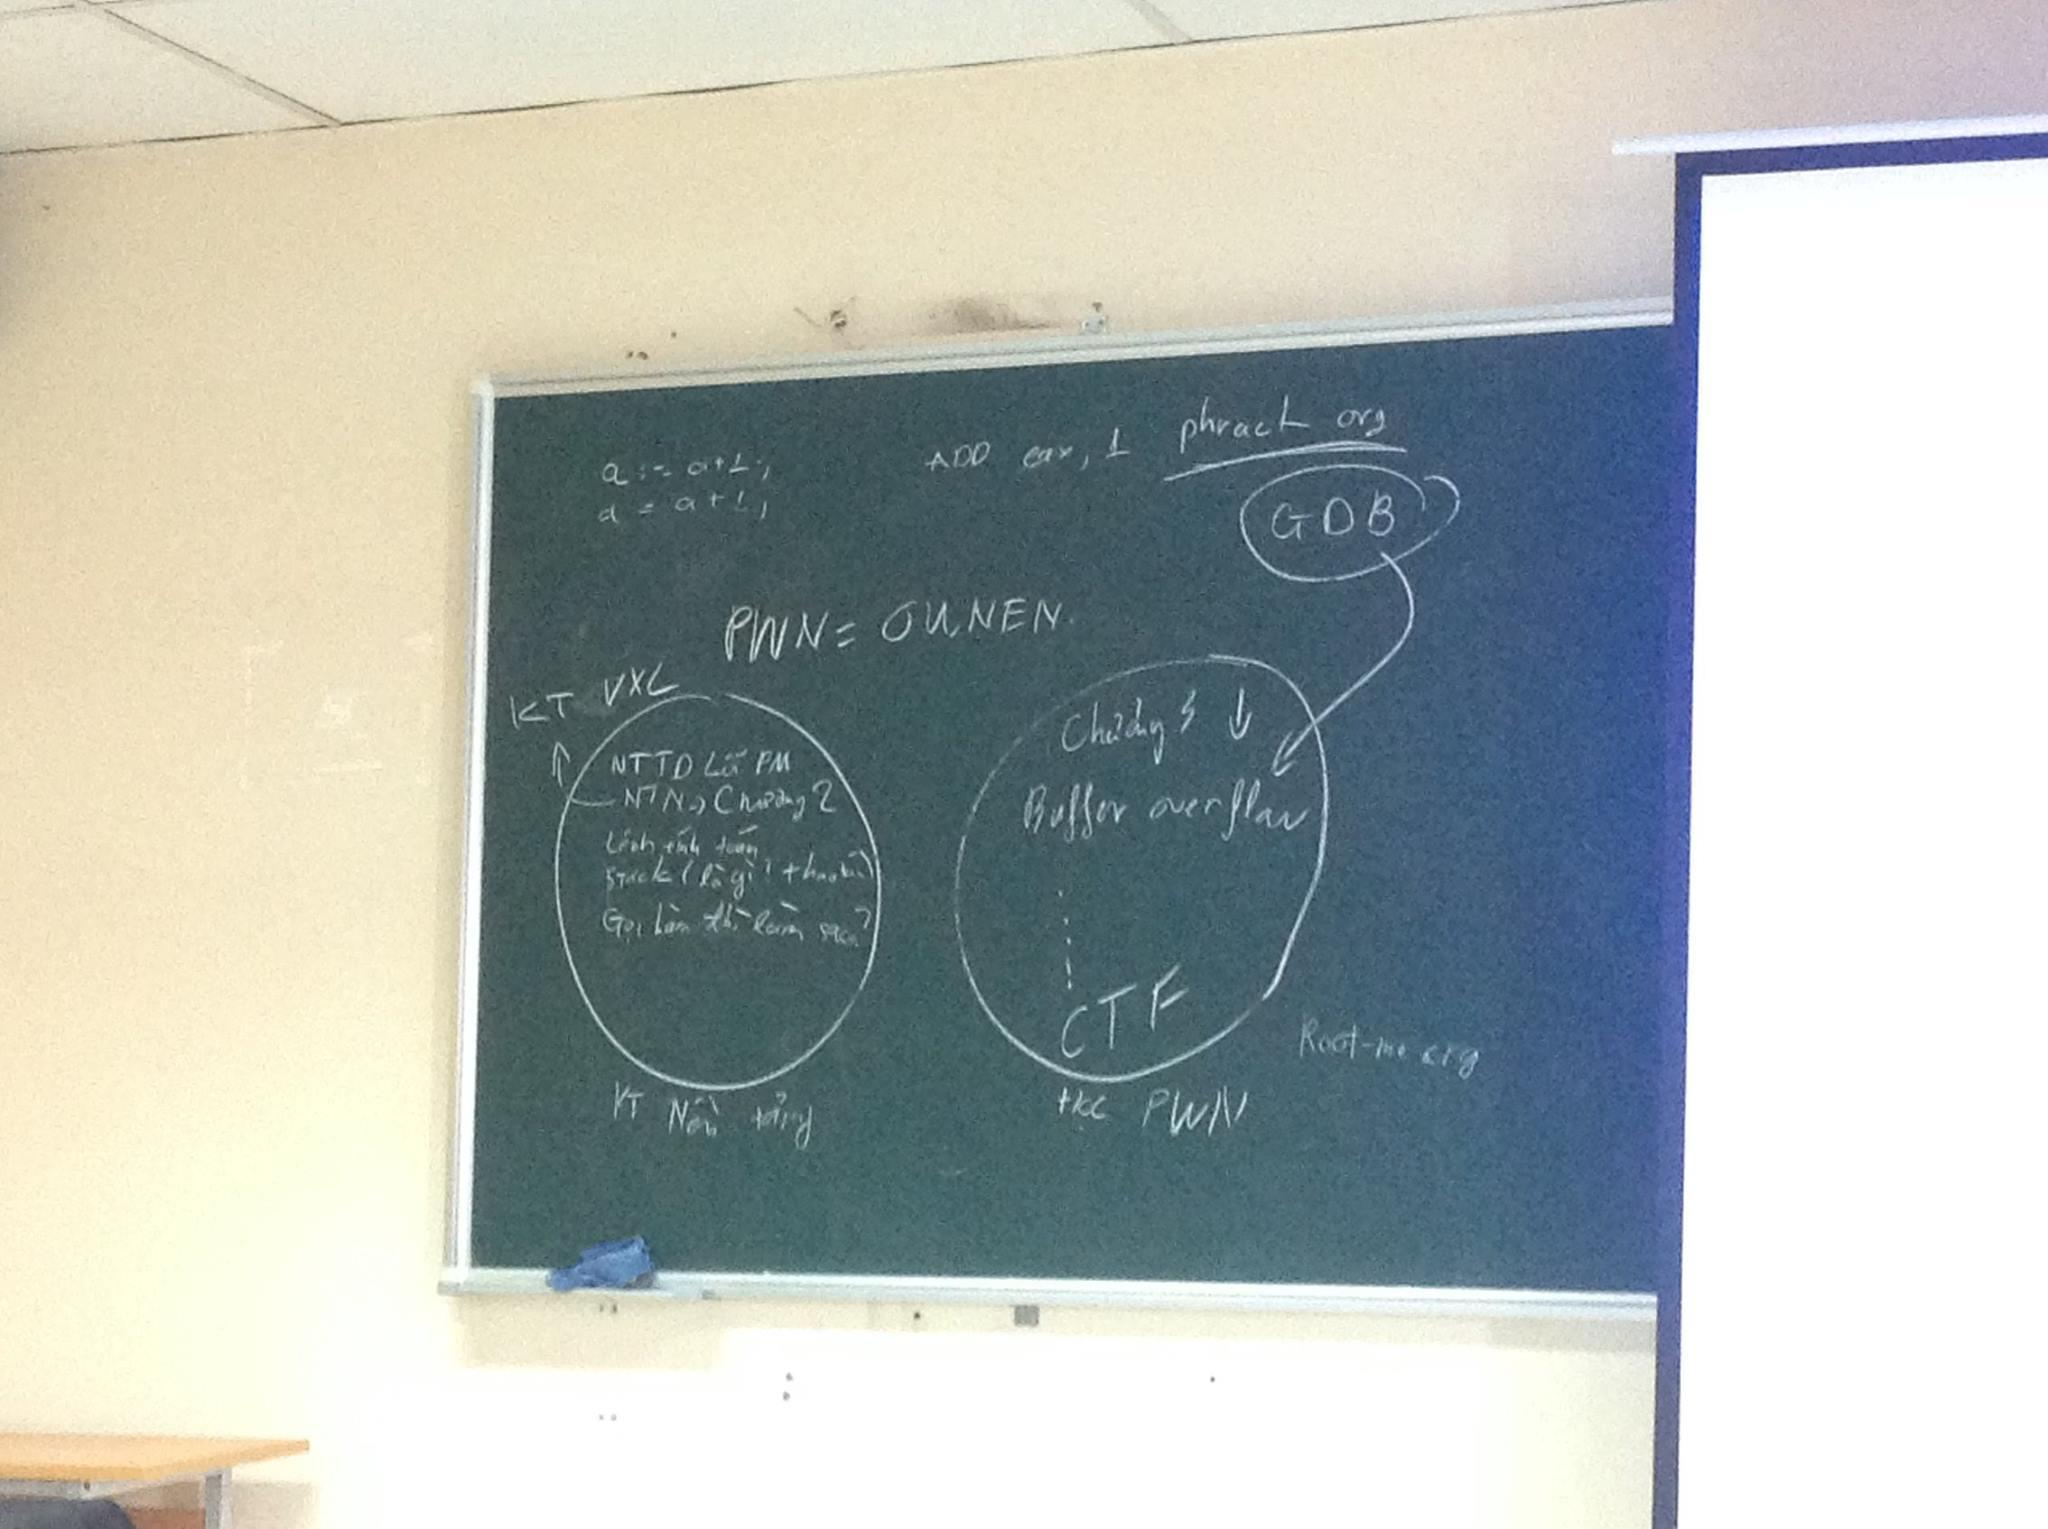 a := a+1;
a = a+1;
ADD eax, 1
phrack org
GDB
PWN = OWNEN
KT VXL
NTTD Lỗi PM
NTN → Chương 2
Lệnh tính toán
stack (là gì? + thao tác)
Gọi hàm thì làm sao?
KT Nền tảng
Chương 3 ↓
Buffer overflow
CTF
PWN
Root-me org